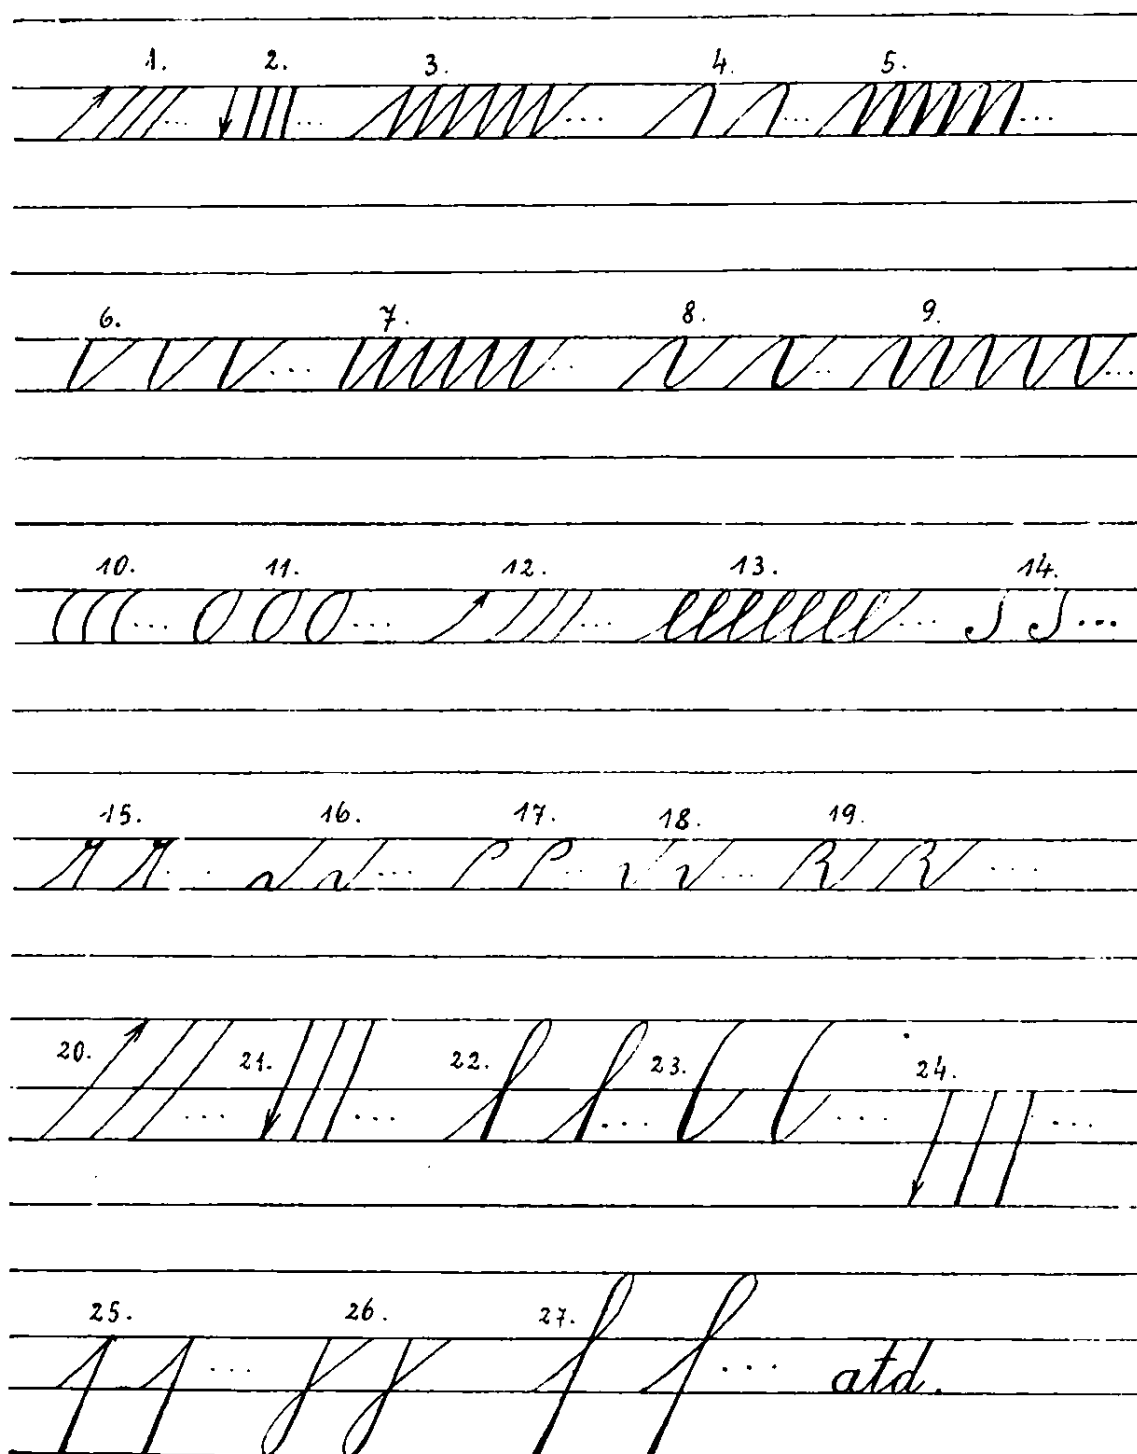 1. 2. 3. 4. 5.
... ... ... ... ...
6. 7. 8. 9.
... .. .. ...
10. 11. 12. 13. 14.
... ... ... ... ...
15. 16. 17. 18. 19.
... ... .. ... ...
20. 21. 22. 23. 24.
... ... ... ... ...
25. 26. 27.
... ... atd.